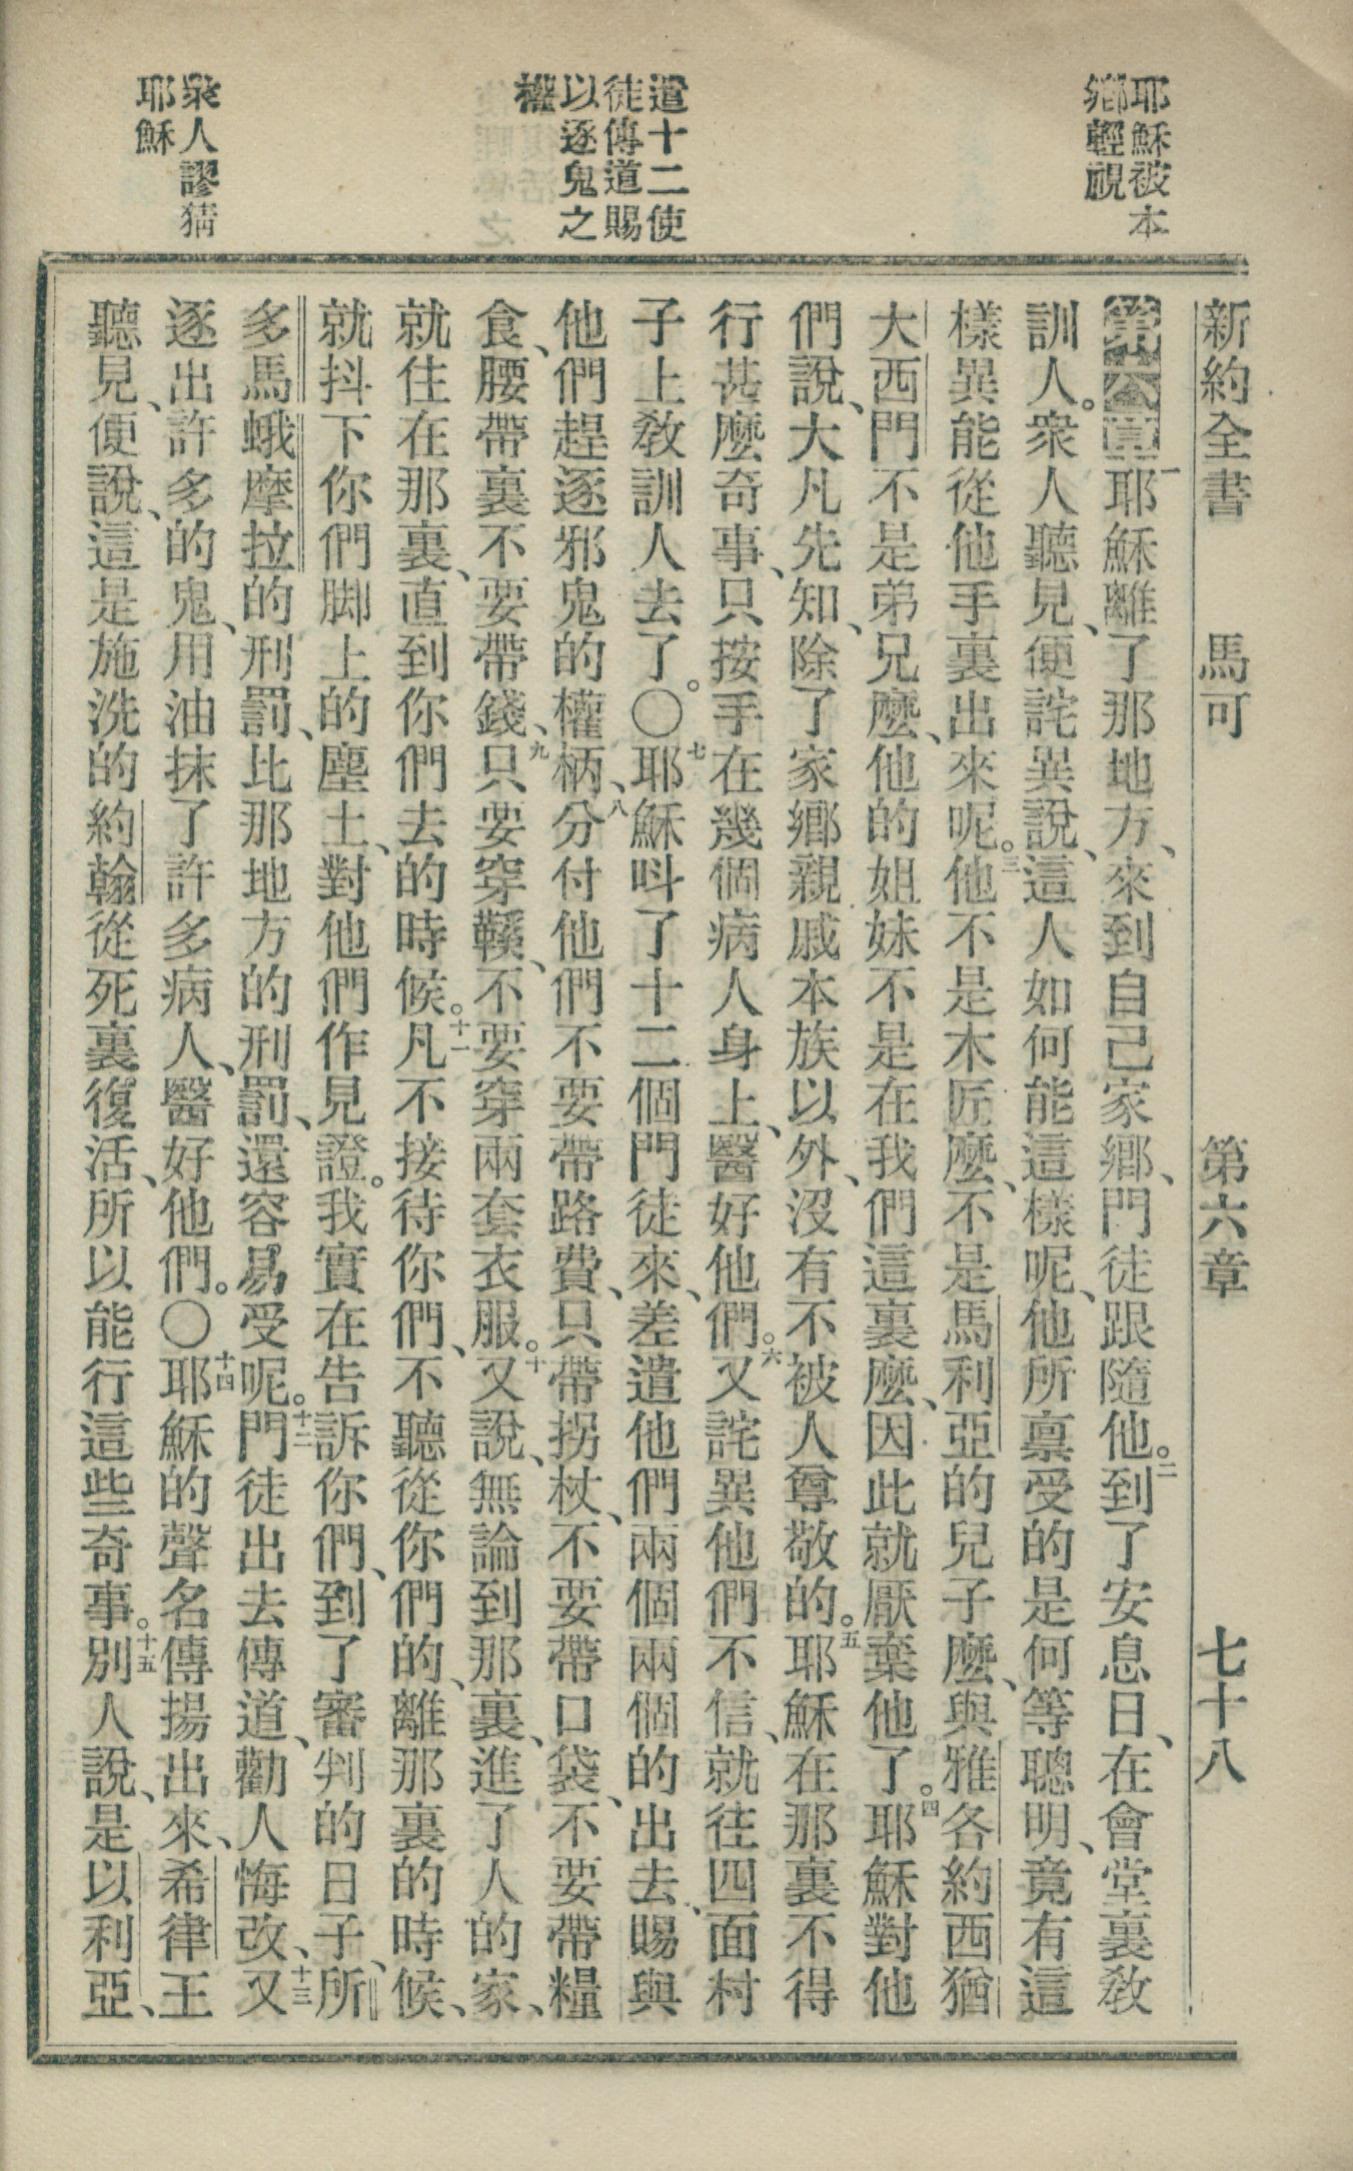 新約全書 馬可 第六章 七十八
耶穌被本
鄉輕視
遣十二使
徒傳道賜
以逐鬼之
權
衆人謬猜
耶穌
第六章一耶穌離了那地方、來到自己家鄉、門徒跟隨他。二到了安息日、在會堂裏敎
訓人。衆人聽見、便詫異說、這人如何能這樣呢、他所禀受的是何等聰明、竟有這
樣異能從他手裏出來呢。三他不是木匠麽、不是馬利亞的兒子麽、與雅各約西猶
大西門不是弟兄麽、他的姐妹不是在我們這裏麽、因此就厭棄他了。四耶穌對他
們說、大凡先知、除了家鄉親戚本族以外、沒有不被人尊敬的。五耶穌在那裏不得
行甚麽奇事、只按手在幾個病人身上、醫好他們。六又詫異他們不信、就往四面村
子上敎訓人去了。〇七耶穌呌了十二個門徒來、差遣他們兩個兩個的出去、賜與
他們趕逐邪鬼的權柄、八分付他們不要帶路費、只帶拐杖、不要帶口袋、不要帶糧
食、腰帶裏不要帶錢、九只要穿鞵、不要穿兩套衣服。十又說、無論到那裏、進了人的家、
就住在那裏、直到你們去的時候。十一凡不接待你們、不聽從你們的、離那裏的時候、
就抖下你們脚上的塵土、對他們作見證。我實在告訴你們、到了審判的日子、所
多馬蛾摩拉的刑罰、比那地方的刑罰、還容易受呢。十二門徒出去傳道、勸人悔改、十三又
逐出許多的鬼、用油抹了許多病人、醫好他們。〇十四耶穌的聲名傳揚出來、希律王
聽見、便說、這是施洗的約翰從死裏復活、所以能行這些奇事。十五別人說、是以利亞、